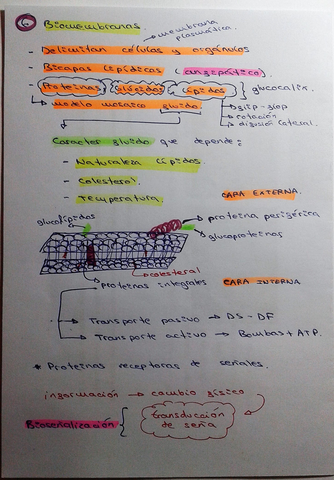 6 Biomembranas.
membrana plasmática.
- Delimitan células y orgánulos
- Bicapas lipídicas (anfipático).
Proteínas glúcidos lípidos glucocalix.
modelo mosaico fluido
flip-flop
rotación
difusión lateral.
Caracter fluido que depende:
- Naturaleza lípidos.
- Colesterol.
- Temperatura.
CARA EXTERNA.
glucolípidos
proteína periférica
glucoproteínas
colesterol
proteínas integrales
CARA INTERNA
Transporte pasivo → DS-DF
Transporte activo → Bombas + ATP.
* Proteínas receptoras de señales.
información → cambio físico
Bioseñalización
transducción de seña